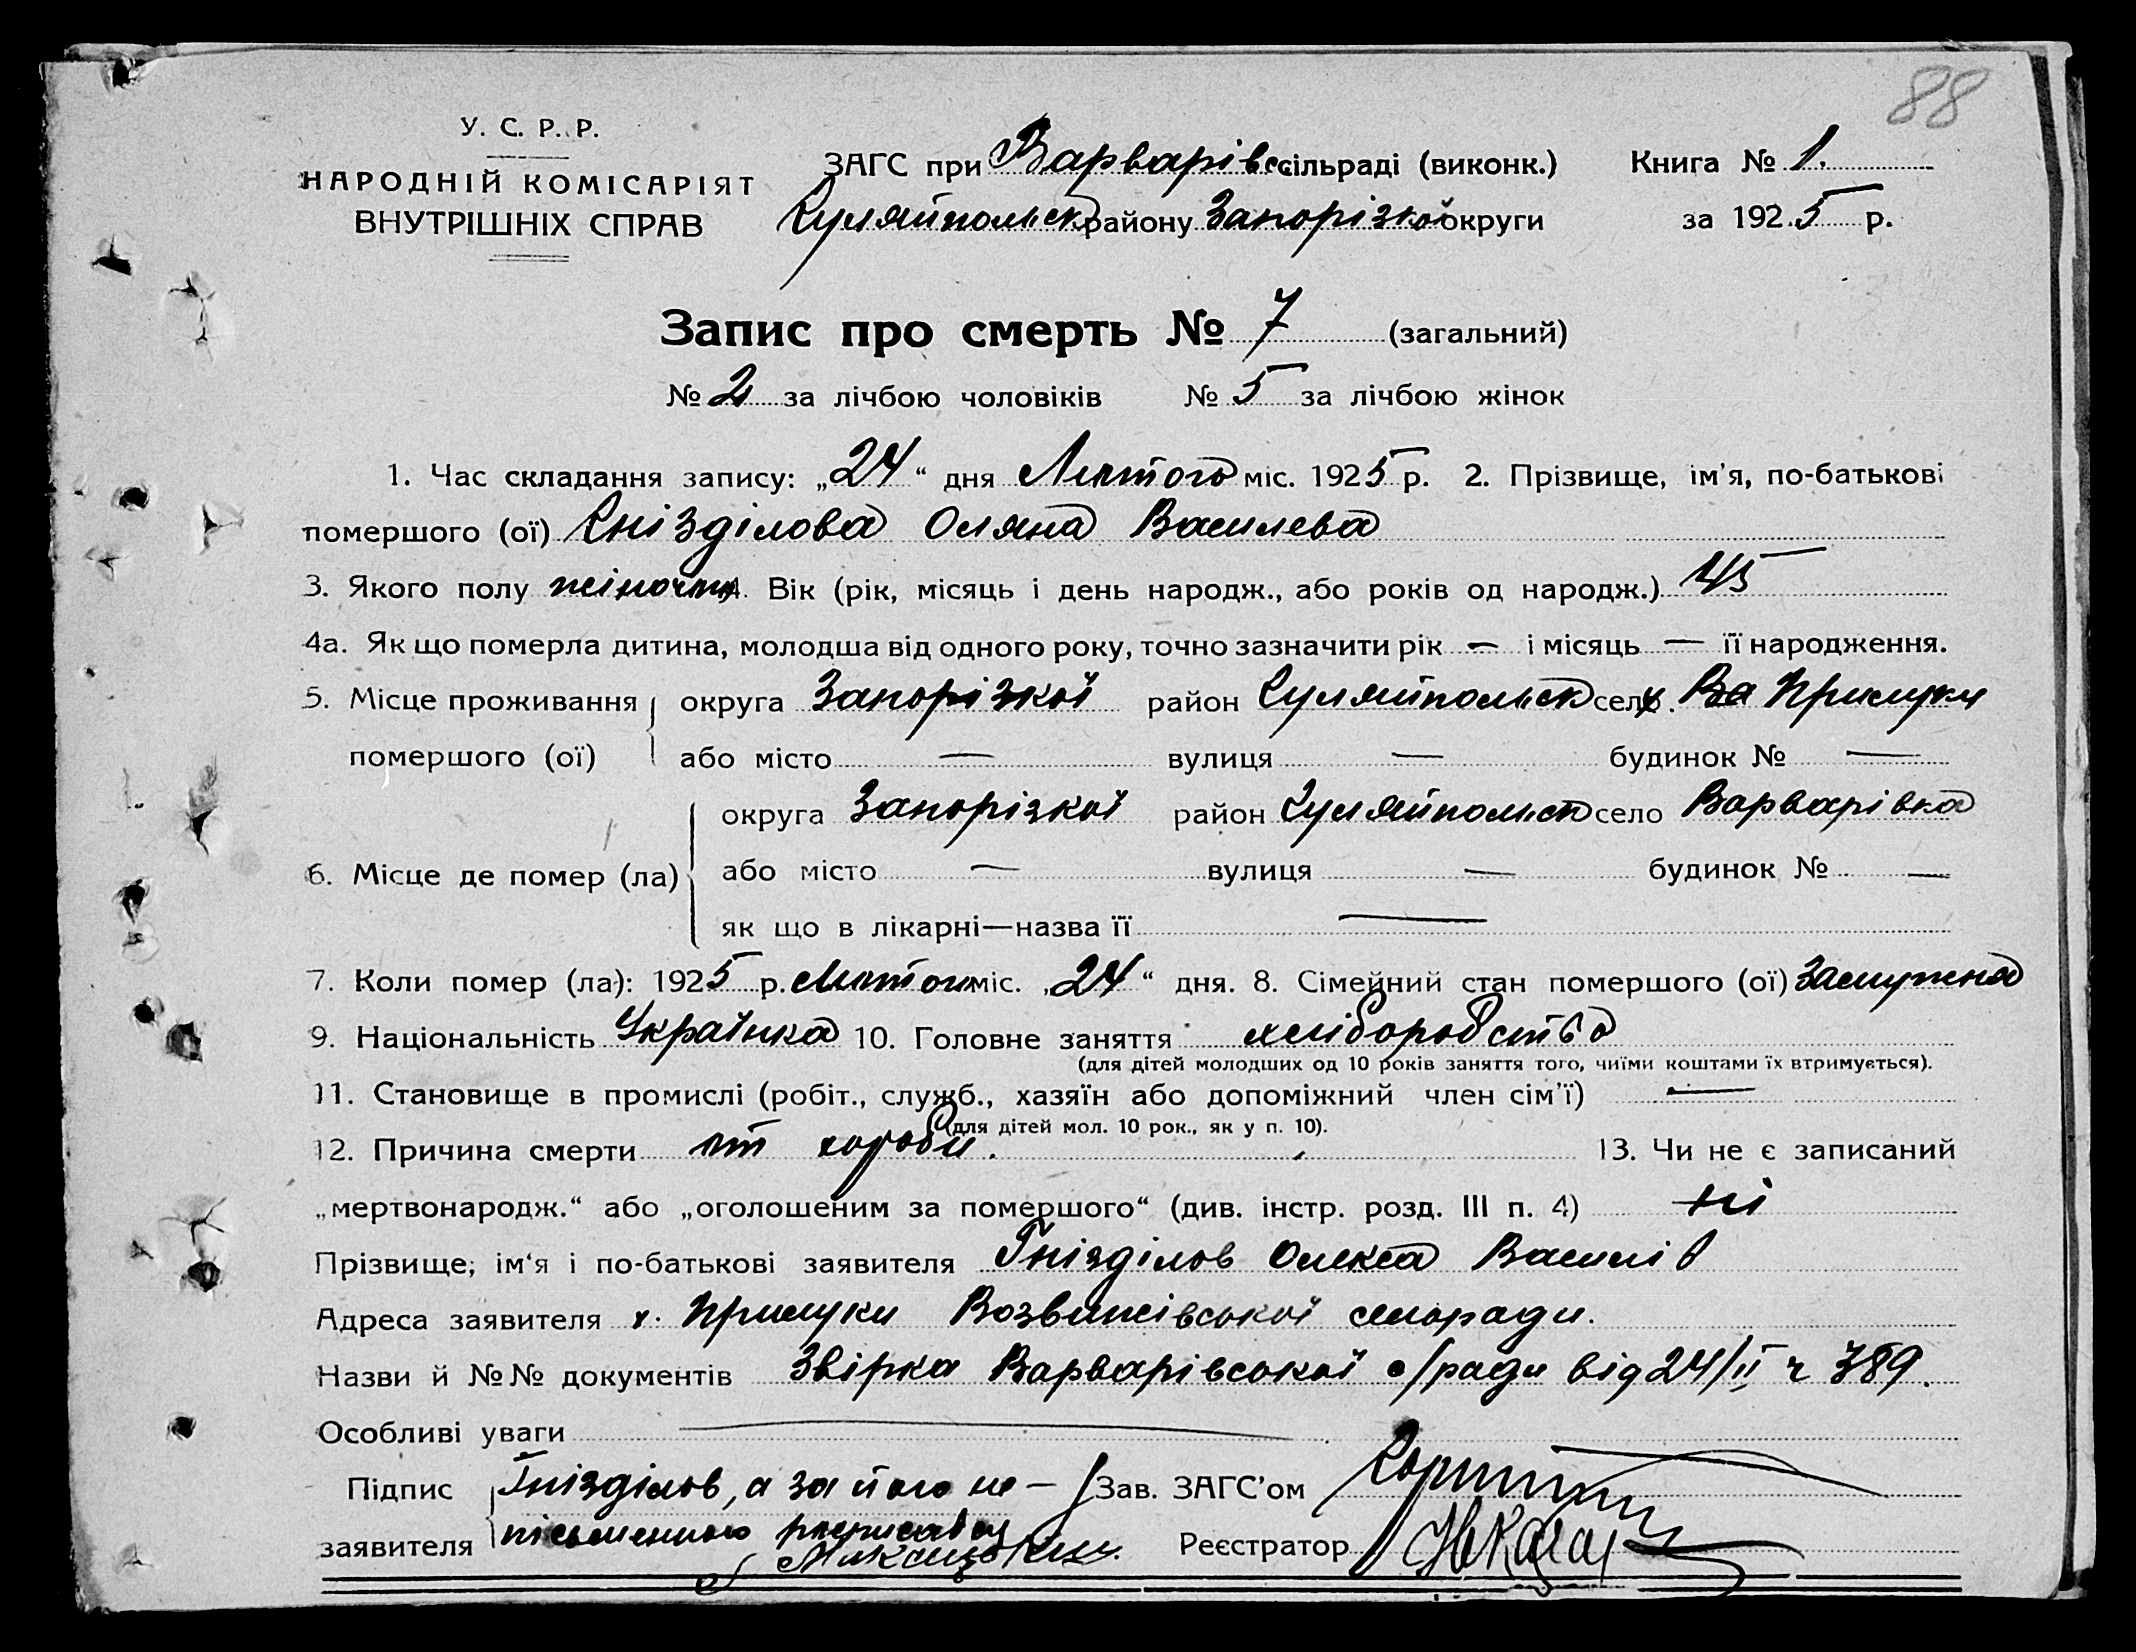 88
У. С. Р. Р.
НАРОДНІЙ КОМІСАРІЯТ
ВНУТРІШНІХ СПРАВ
ЗАГС при Варварівс сільраді (виконк.) Книга № 1.
Гуляйпольск району Запорізкої округи за 1925 р.
Запис про смерть № 7 (загальний)
№ 2 за лічбою чоловіків № 5 за лічбою жінок
1. Час складання запису: „24“ дня Лютого міс. 1925 р. 2. Прізвище, ім'я, по-батькові
помершого (ої) Гнізділова Оляна Василева
3. Якого полу жіночи 4. Вік (рік, місяць і день народж., або років од народж.) 45
4а. Як що померла дитина, молодша від одного року, точно зазначити рік — і місяць — її народження.
5. Місце проживання округа Запорізкої район Гуляйпольск село. Прилуки
помершого (ої) або місто — вулиця — будинок № —
округа Запорізкої район Гуляйпольск село Варварівка
6. Місце де помер (ла) або місто — вулиця — будинок № —
як що в лікарні—назва її —
7. Коли помер (ла): 1925 р. Лютого міс. „24“ дня. 8. Сімейний стан помершого (ої) Замужна
9. Національність Українка 10. Головне заняття хліборобство
(для дітей молодших од 10 років заняття того, чиїми коштами їх втримується).
11. Становище в промислі (робіт., служб., хазяїн або допоміжний член сім'ї) —
(для дітей мол. 10 рок., як у п. 10).
12. Причина смерти от хороби. 13. Чи не є записаний
„мертвонародж.“ або „оголошеним за помершого“ (див. інстр. розд. III п. 4) ні
Прізвище, ім'я і по-батькові заявителя Гнізділов Олекса Василів
Адреса заявителя х. Прилуки Возвижівської сельради.
Назви й №№ документів Звірка Варварівської с/ради від 24/II ч 789.
Особливі уваги —
Підпис Гнізділов, а за його не- Зав. ЗАГС'ом
заявителя письменного росписався Реєстратор